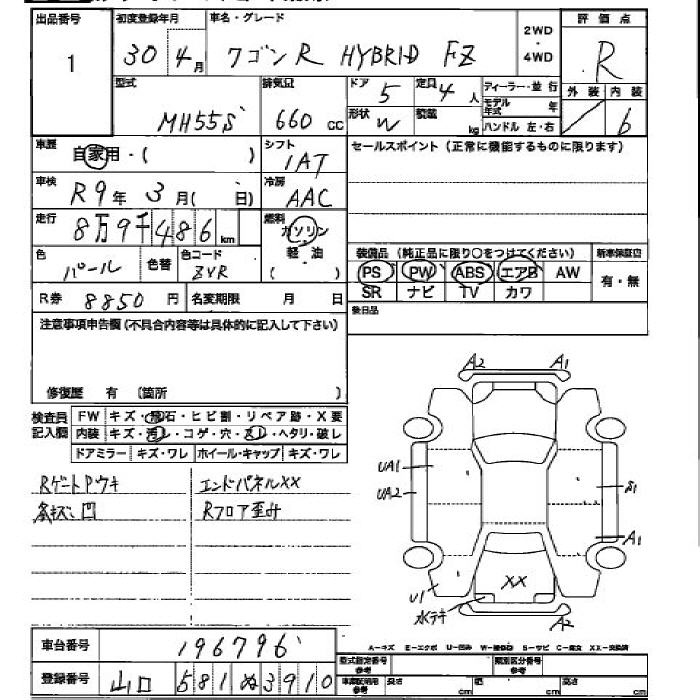 出品番号 1
初度登録年月 30年 4月
車名・グレード ワゴンR HYBRID FZ
2WD ・ 4WD
評価点 R
外装 ／ 内装 6
型式 MH55S
排気量 660 cc
ドア 5
定員 4人
形状 W
積載 kg
ディーラー・並行
モデル年式 年
ハンドル 左・右
車歴 自家用・( )
シフト IAT
車検 R9年 3月( 日)
冷房 AAC
走行 8万9千486 km
燃料 ガソリン 軽油 ( )
色 パール
色替
色コード ZVR
R券 8850円
名変期限 月 日
セールスポイント(正常に機能するものに限ります)
装備品(純正品に限り○をつけてください)
PS PW ABS エアB AW
SR ナビ TV カワ
新車保証書 有・無
後日品
注意事項申告欄(不具合内容等は具体的に記入して下さい)
修復歴 有 (箇所 )
検査員記入欄
FW キズ・飛石・ヒビ割・リペア跡・X要
内装 キズ・汚レ・コゲ・穴・スレ・ヘタリ・破レ
ドアミラー キズ・ワレ ホイール・キャップ キズ・ワレ
Rゲートアウキ エンドパネルXX
Rフロア歪み
A2 A1
UA1
UA2
S1
A1
XX
U1
水テキ
A2
A－キズ E－エクボ U－凹み W－補修跡 S－サビ C－腐食 XX－交換済
車台番号 196796
登録番号 山口 581 ぬ 3910
型式指定番号 参考
類別区分番号 参考
車両証明用 参考 長さ cm 巾 cm 高さ cm